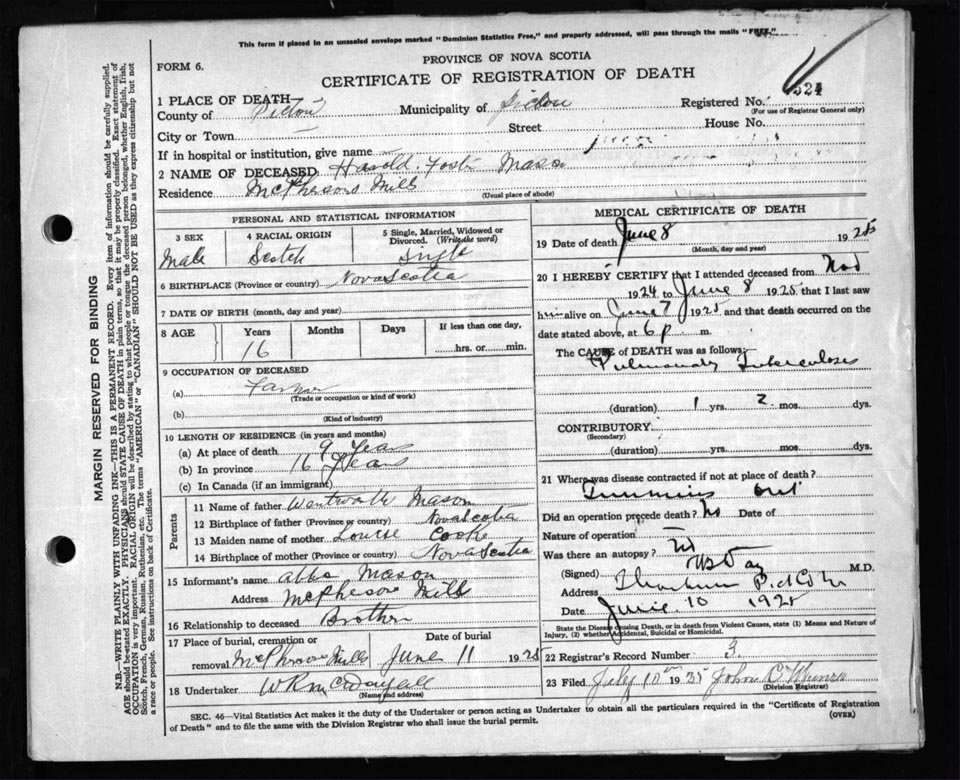 This form if placed in an unsealed envelope marked "Dominion Statistics Free," and properly addressed, will pass through the mails "FREE."
FORM 6.
PROVINCE OF NOVA SCOTIA
CERTIFICATE OF REGISTRATION OF DEATH
1 PLACE OF DEATH
County of Pictou Municipality of Pictou Registered No. 324
(For use of Registrar General only)
City or Town — Street House No.
If in hospital or institution, give name —
2 NAME OF DECEASED Harold Foster Mason
Residence McPhersons Mills
(Usual place of abode)
PERSONAL AND STATISTICAL INFORMATION
3 SEX Male
4 RACIAL ORIGIN Scotch
5 Single, Married, Widowed or Divorced. (Write the word) Single
6 BIRTHPLACE (Province or country) Nova Scotia
7 DATE OF BIRTH (month, day and year)
8 AGE Years 16 Months Days If less than one day, ......hrs. or ...... min.
9 OCCUPATION OF DECEASED
(a) Farmer
(Trade or occupation or kind of work)
(b)
(Kind of industry)
10 LENGTH OF RESIDENCE (in years and months)
(a) At place of death 9 Years
(b) In province 16 Years
(c) In Canada (if an immigrant)
Parents
11 Name of father Wentworth Mason
12 Birthplace of father (Province or country) Nova Scotia
13 Maiden name of mother Louise Cooke
14 Birthplace of mother (Province or country) Nova Scotia
15 Informant's name Mason
Address McPhersons Mills
16 Relationship to deceased Brother
17 Place of burial, cremation or removal McPhersons Mills Date of burial June 11 1925
18 Undertaker
(Name and address)
MEDICAL CERTIFICATE OF DEATH
19 Date of death June 8 1925
(Month, day and year)
20 I HEREBY CERTIFY that I attended deceased from Nov
1924 to June 8 1925 that I last saw
him alive on June 7 1925 and that death occurred on the
date stated above, at 6 p m.
The CAUSE of DEATH was as follows:
Pulmonary Tuberculosis
(duration) 1 yrs. 2 mos. dys.
CONTRIBUTORY
(Secondary)
(duration) yrs. mos. dys.
21 Where was disease contracted if not at place of death?
Timmins Ont
Did an operation precede death? No Date of
Nature of operation —
Was there an autopsy? No
(Signed) M.D.
Address Thorburn Pict Co NS
Date June 10 1925
State the Disease causing Death, or in death from Violent Causes, state (1) Means and Nature of Injury, (2) whether Accidental, Suicidal or Homicidal.
22 Registrar's Record Number 3.
23 Filed July 10th 1925 John C Munro
(Division Registrar)
SEC. 46—Vital Statistics Act makes it the duty of the Undertaker or person acting as Undertaker to obtain all the particulars required in the "Certificate of Registration
of Death" and to file the same with the Division Registrar who shall issue the burial permit.
(OVER)
MARGIN RESERVED FOR BINDING
N.B.—WRITE PLAINLY WITH UNFADING INK—THIS IS A PERMANENT RECORD. Every item of information should be carefully supplied.
AGE should be stated EXACTLY. PHYSICIANS should STATE CAUSE OF DEATH in plain terms, so that it may be properly classified. Exact statement of
OCCUPATION is very important. RACIAL ORIGIN will be described by stating to what people or tongue the deceased person belonged, whether English, Irish,
Scotch, French, German, Russian, Ruthenian, etc. The terms "AMERICAN" or "CANADIAN" SHOULD NOT BE USED as they express citizenship but not
a race or people. See instructions on back of Certificate.